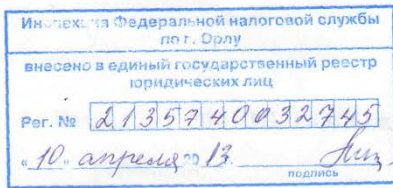 Инспекция Федеральной налоговой службы
по г. Орлу
внесено в единый государственный реестр
юридических лиц
Рег. № 2135740032745
« 10 » апреля 20 13.
подпись